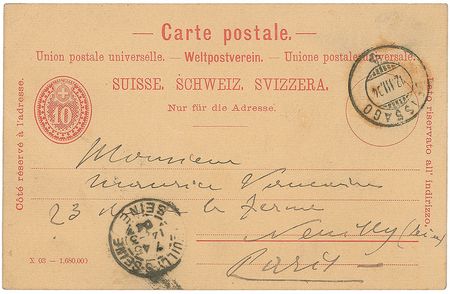 Carte postale.
Union postale universelle. — Weltpostverein. — Unione postale universale.
SUISSE. SCHWEIZ. SVIZZERA.
Nur für die Adresse.
Côté réservé à l'adresse.
10
Lato riservato all' indirizzo.
ASSAGO
12.VII.04
Monsieur
Maurice
23 la ferme
Neuilly (Seine)
Paris
SEINE
X 03 — 1,680,000